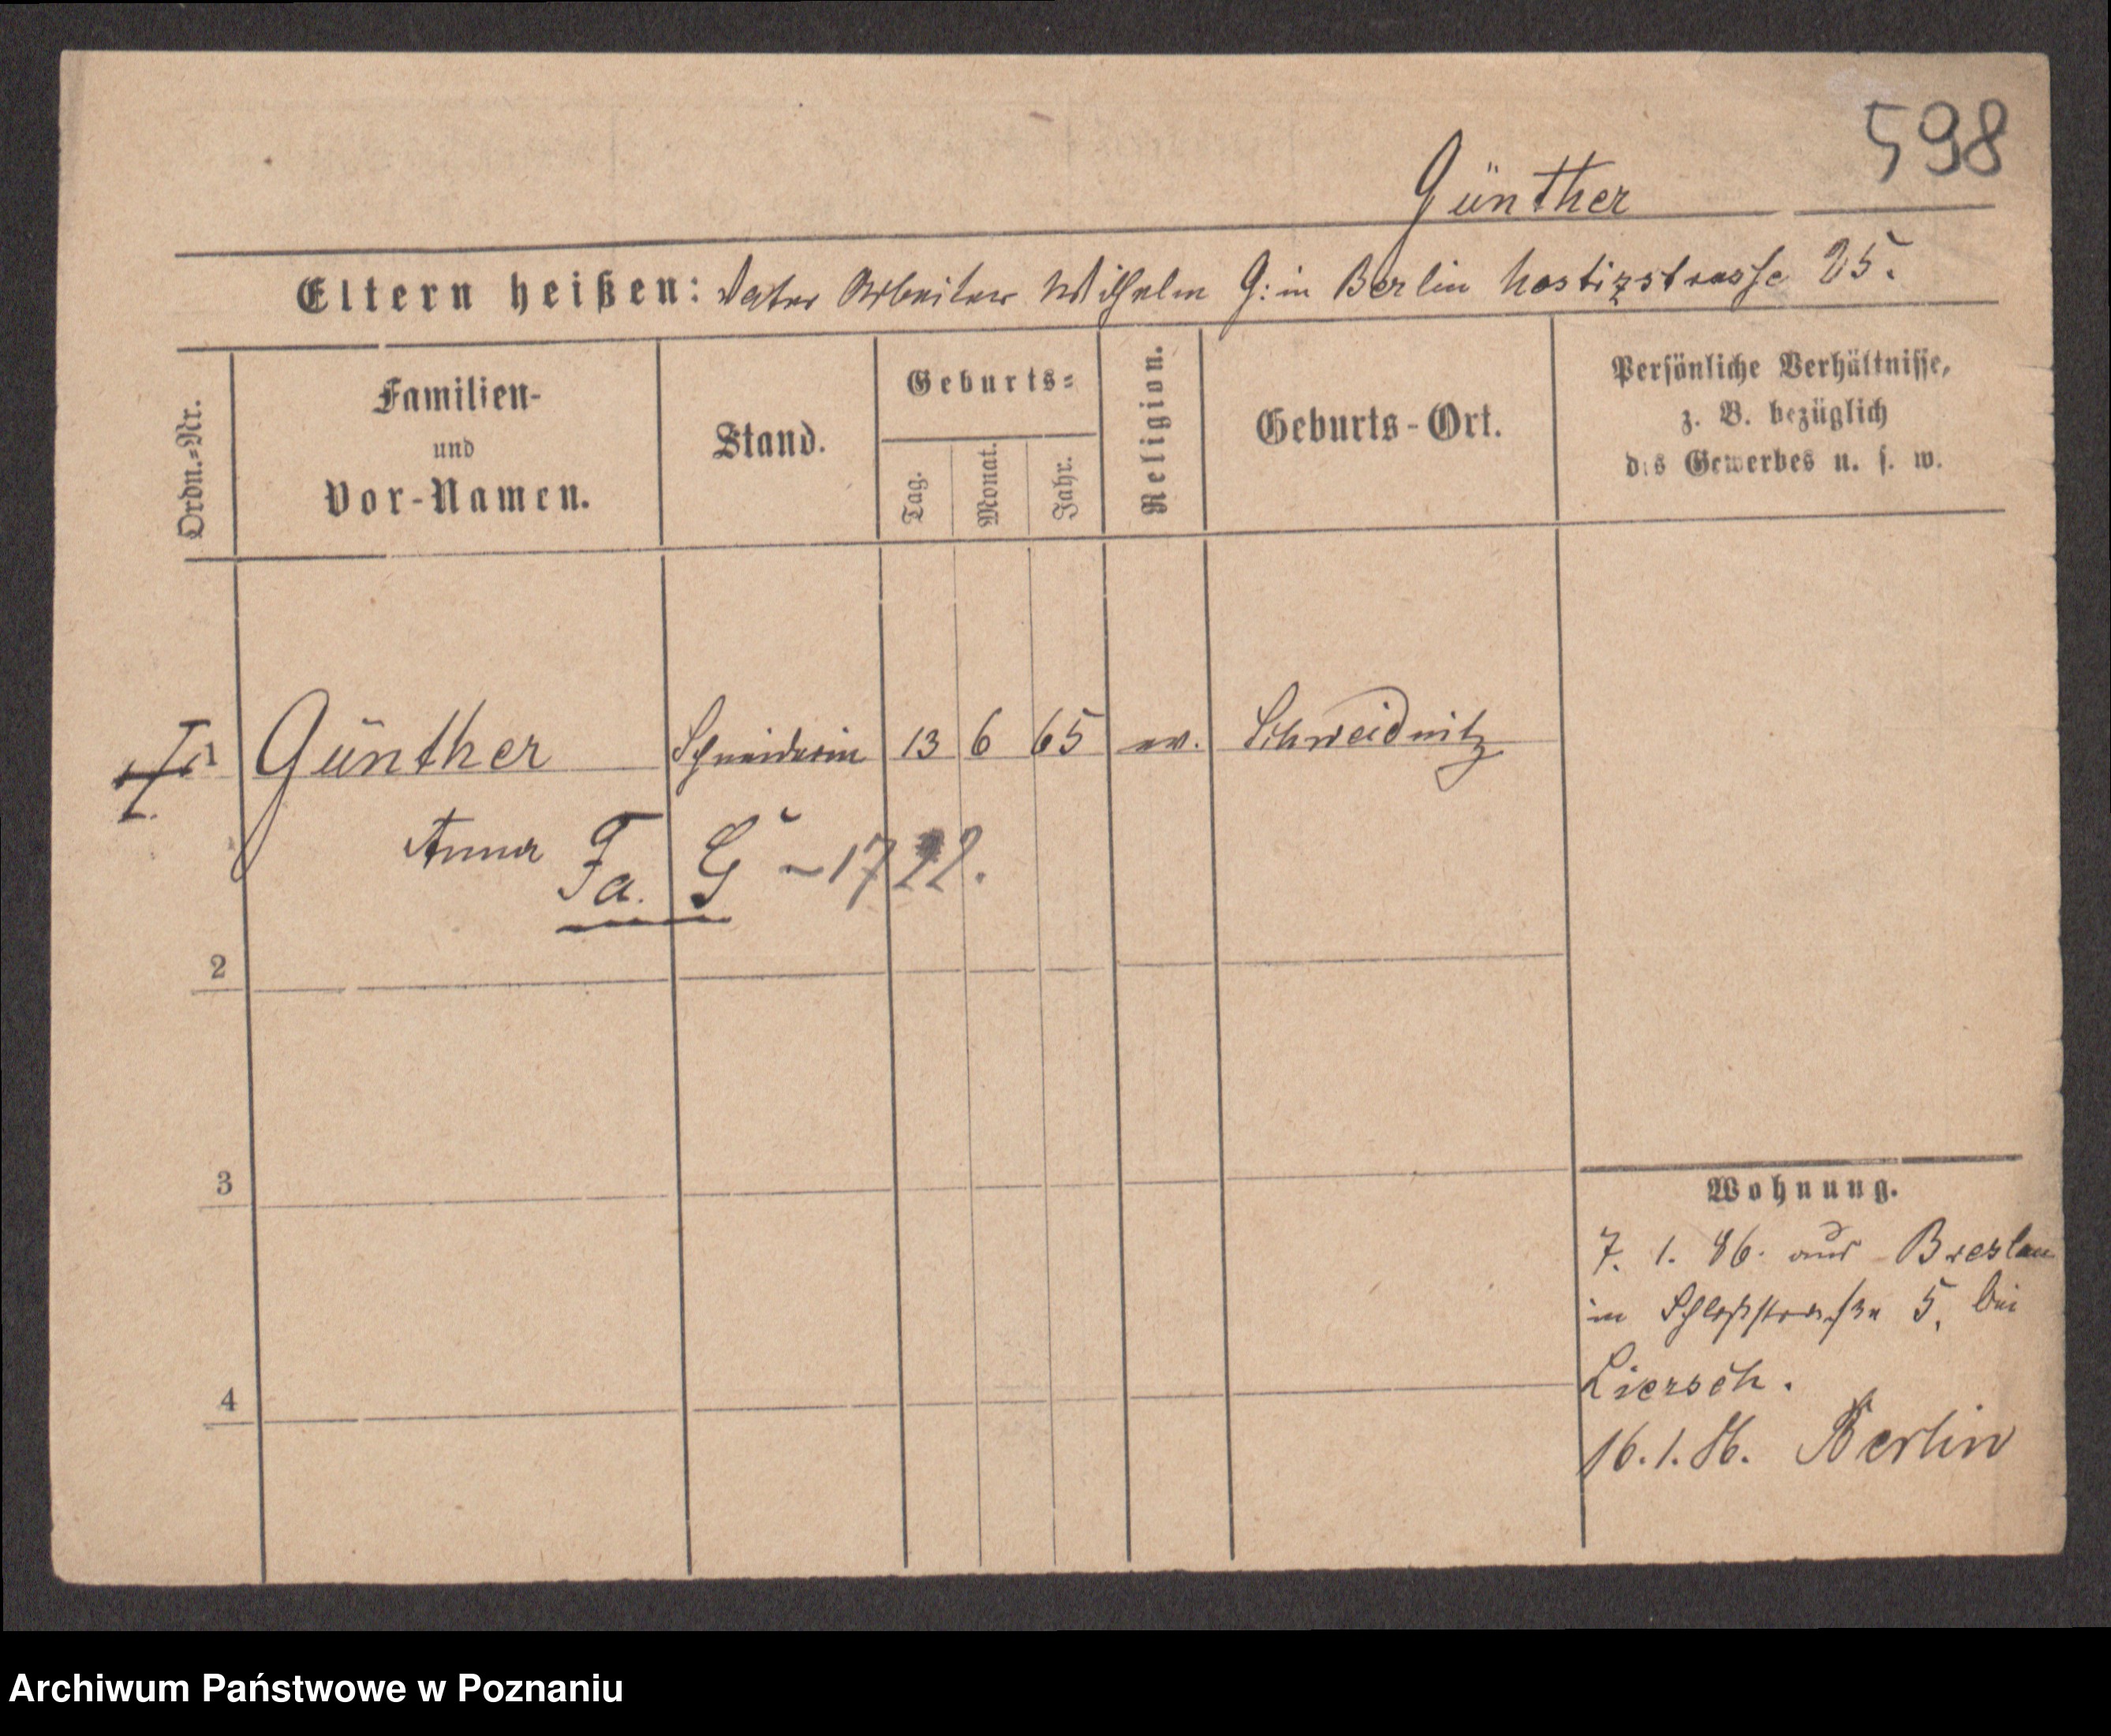 598
Günther
Eltern heißen: Vater Arbeiter Wilhelm G: in Berlin Nostizstrasse 25.
Ordn.-Nr.
Familien-
und
Vor-Namen.
Stand.
Geburts-
Tag.
Monat.
Jahr.
Religion.
Geburts-Ort.
Persönliche Verhältnisse,
z. B. bezüglich
des Gewerbes u. s. w.
1 Günther Schneiderin 13 6 65 ev. Schweidnitz
Anna
Fa. G - 1722.
2
3
4
Wohnung.
7. 1. 86. aus Breslau
in Schloßstraße 5, bei
Liersch.
16. 1. 86. Berlin
Archiwum Państwowe w Poznaniu